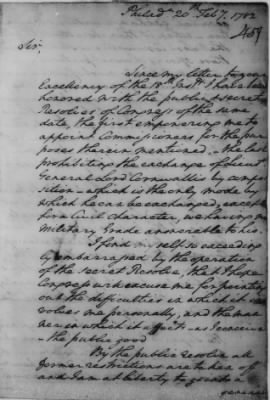 Philad.a 20th Feby. 1782
459
Sir,
Since my letter to your
Excellency of the 18th Inst. I have been
honored with the public & secret
Resolves of Congress of the same
date, the first empowering me to
appoint Commissioners for the pur-
poses therein mentioned — the last
prohibiting the exchange of Lieut
General Lord Cornwallis by compo-
sition — which is the only mode by
which he can be exchanged, except
for a Civil character, we having no
Military Grade answerable to his.
I find myself so exceeding
ly embarrassed by the operation
of the secret Resolve, that I hope
Congress will excuse me for pointing
out the difficulties in which it in
volves me personally, and the man
ner in which it affects — as I conceive
— the public good
By the public resolve all
former restrictions are taken off
and I am at liberty to go into a
general